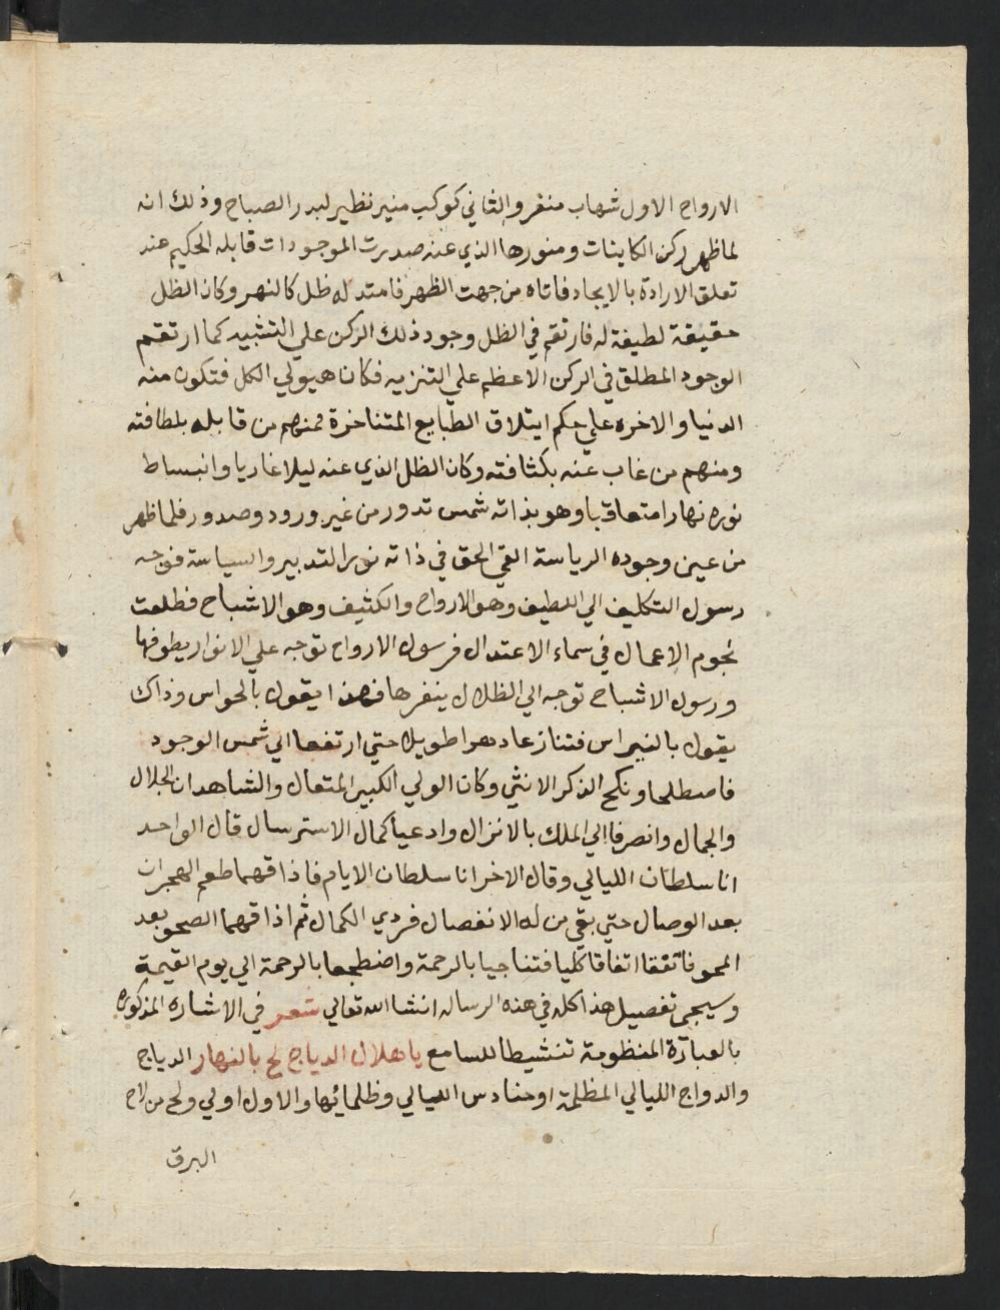 الارواح الاول شهاب منفر والثاني كوكب منير نظير لبدر الصباح وذلك انه
لما ظهر ركن الكاينات ومنورها الذي عنه صدرت الموجودات قابله الحكيم عند
تعلق الارادة بالايجاد فاتاه من جهت الظهر فامتد له ظل كالنهر وكان الظل
حقيقة لطيفة له فارتقم في الظل وجود ذلك الركن علي التشبيه كما ارتقم
الوجود المطلق في الركن الاعظم علي التنزيه فكان هيولي الكل فتكون منه
الدنيا والاخره علي حكم ايتلاف الطبايع المتناخرة فمنهم من قابله بلطافته
ومنهم من غاب عنه بكثافته وكان الظل الذي عنه ليلا غاديا وانبساط
نوره نهارا متعاقبا وهو بذاته شمس تدور من غير ورود وصدور فلما ظهر
من عين وجوده الرياسة القي الحق في ذاته نور التدبير والسياسة فوجه
رسول التكليف الي اللطيف وهو الارواح والكثيف وهو الاشباح فطلعت
نجوم الاعمال في سماء الاعتدال فرسول الارواح توجه علي الانوار يطوفها
ورسول الاشباح توجه الي الظلال ينفرها فهذا يقول بالحواس وذاك
يقول بالنبراس فتنازعا دهرا طويلا حتي ارتفعا الي شمس الوجود
فاصطلحا ونكح الذكر الانثي وكان الولي الكبير المتعال والشاهدان الجلال
والجمال وانصرفا الي الملك بالانزال وادعيا كمال الاسترسال قال الواحد
انا سلطان الليالي وقال الاخر انا سلطان الايام فاذاقهما طعم الهجران
بعد الوصال حتي بقي من له الانفصال فردي الكمال ثم اذاقهما الصحو بعد
المحو فاتفقا اتفاقا كليا فتناجيا بالرحمة واضطجعا بالرحمة الي يوم القيمة
وسيجي تفصيل هذا كله في هذه الرساله انشا الله تعالي شعر في الاشاره المذكوره
بالعبارة المنظومة تنشيطا للسامع يا هلال الدياج لح بالنهار الدياج
والدواج الليالي المظلمة او حنادس الليالي وظلمائها والاول اولي ولح من لاح
البرق